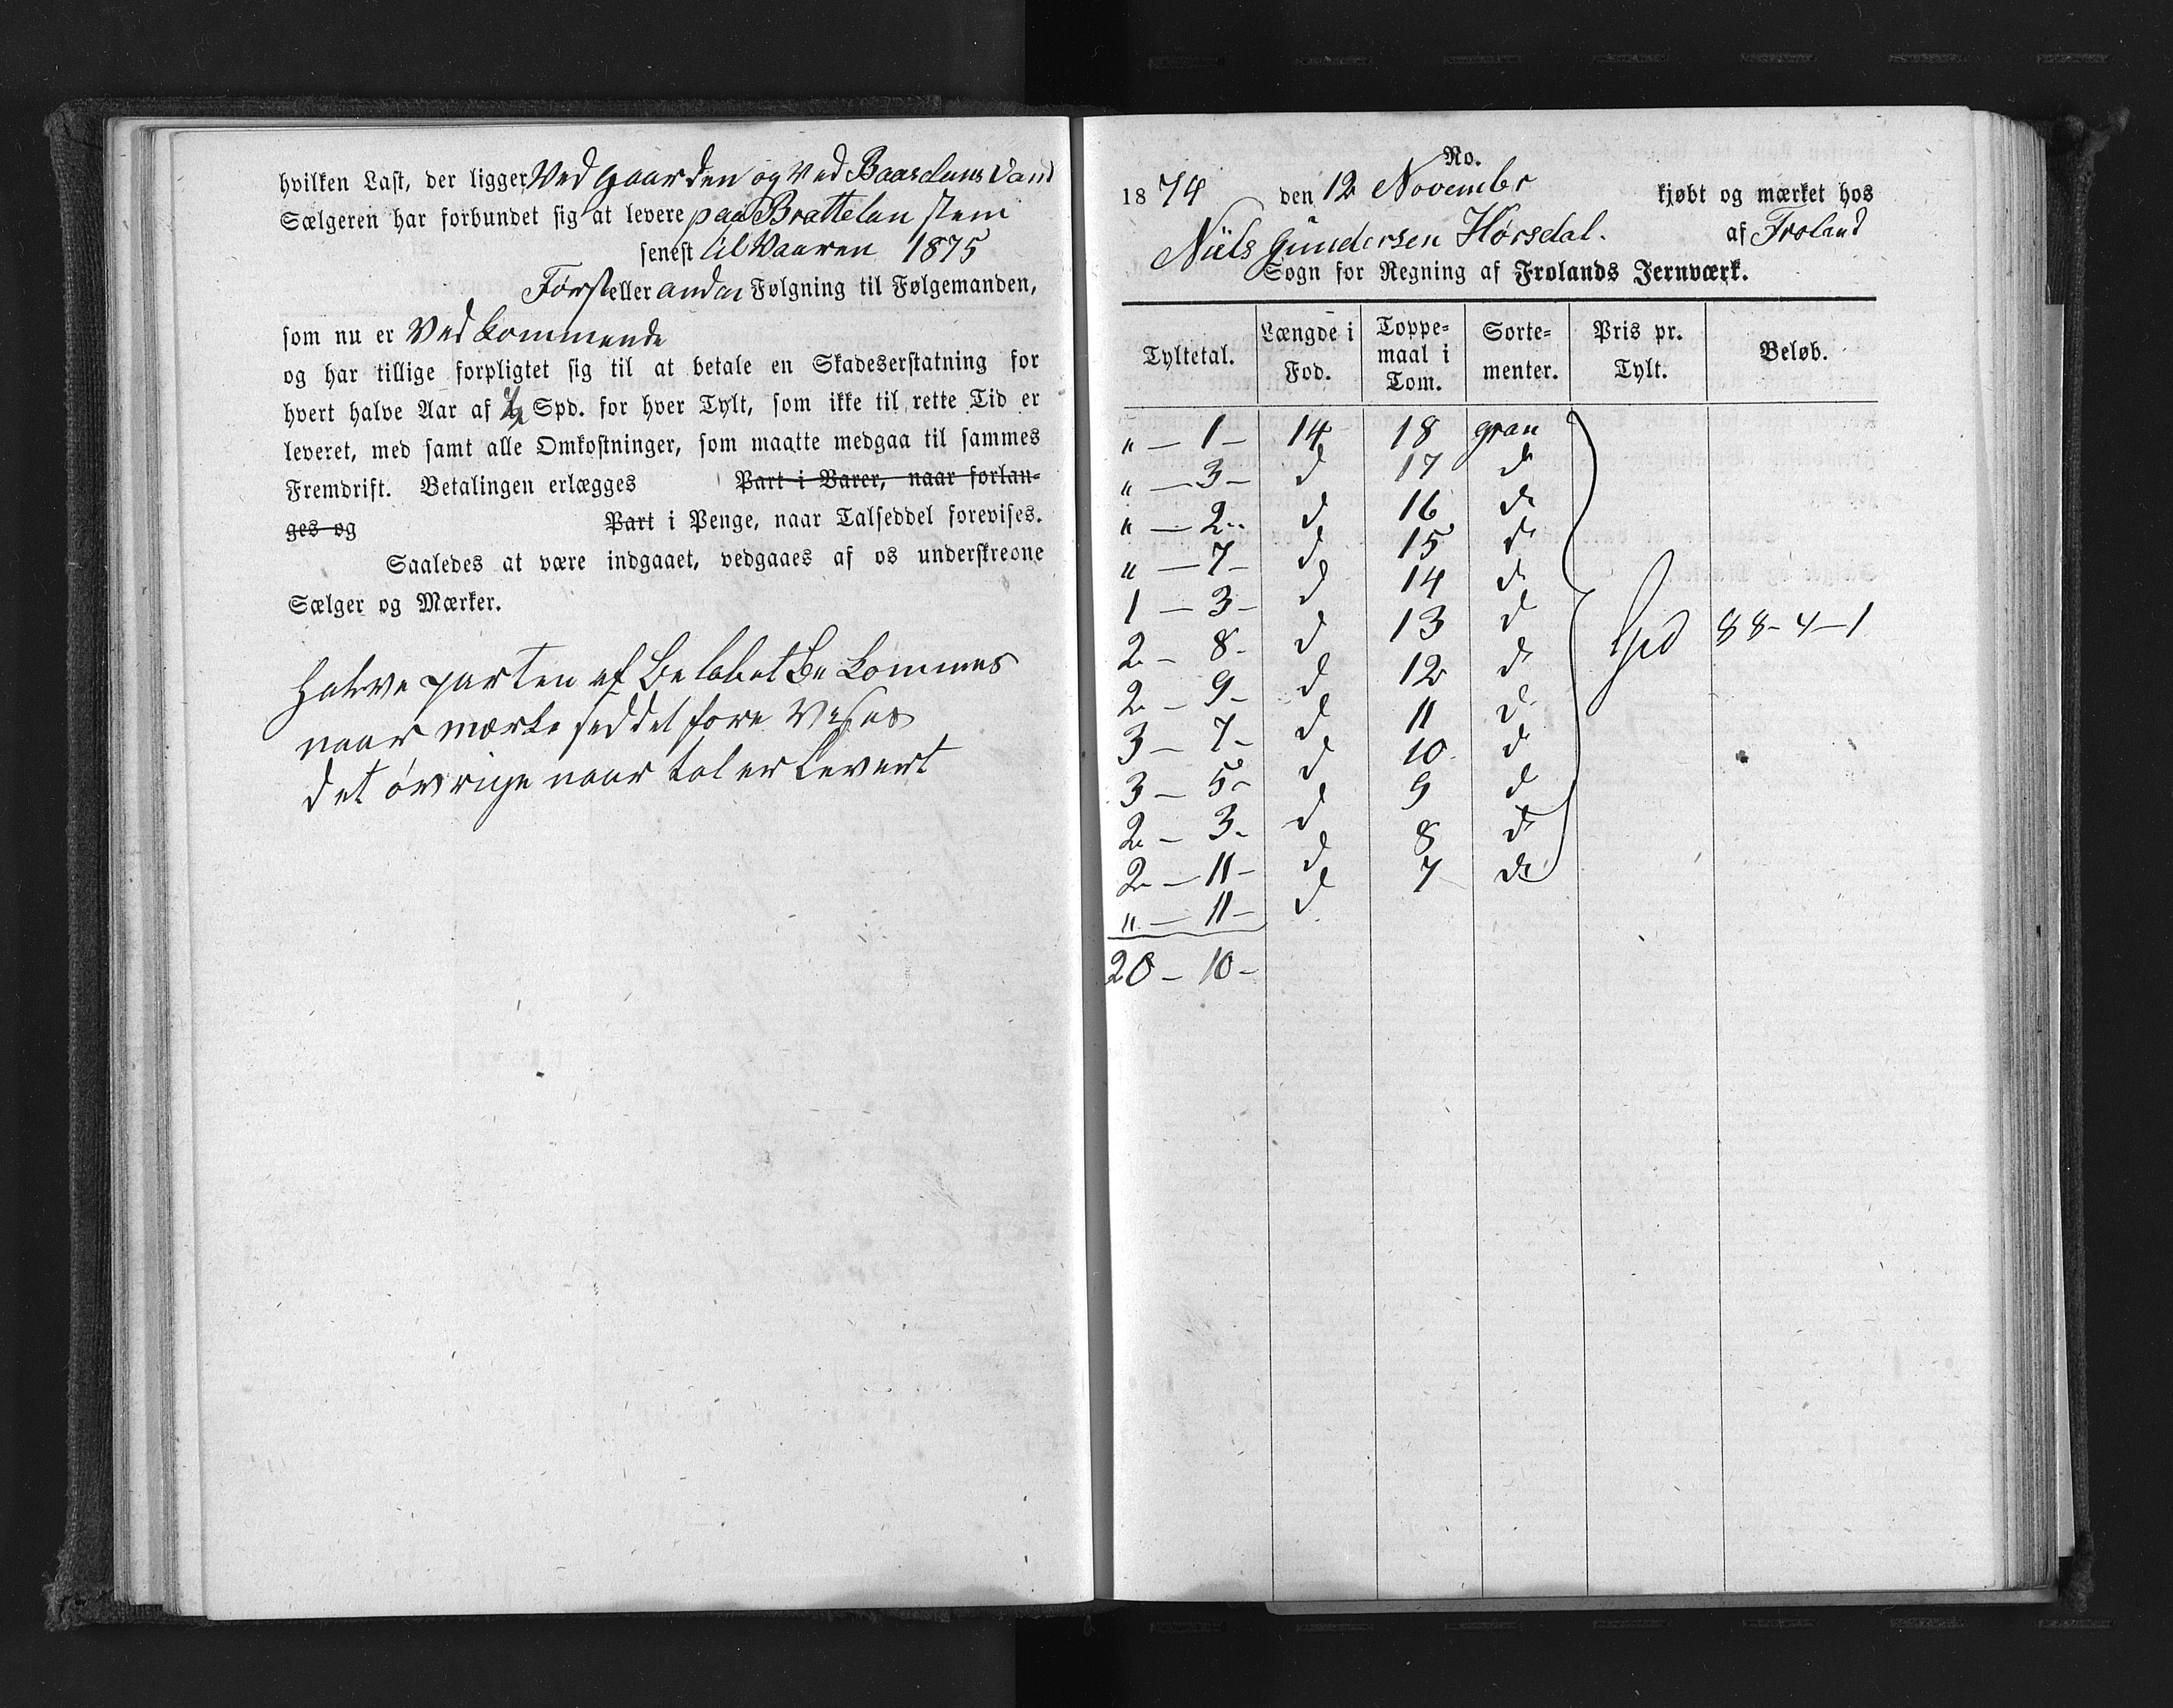 hvilken Last, der ligger Ved gaarden og Ved Baaselans Vand
Sælgeren har forbundet sig at levere paa Brattelan stem
senest til Vaaren 1875
Første eller anden Følgning til Følgemanden,
som nu er Vedkommende
og har tillige forpligtet sig til at betale en Skadeserstatning for
hvert halve Aar af ½ Spd. for hver Tylt, som ikke til rette Tid er
leveret, med samt alle Omkostninger, som maatte medgaa til sammes
Fremdrift. Betalingen erlægges Part i Varer, naar forlan-
ges og Part i Penge, naar Talseddel forevises.
Saaledes at være indgaaet, vedgaaes af os underskrevne
Sælger og Mærker.
Halve parten af Beløbet Be kommes
naar mærke seddel fore Vises
det øvrige naar tal er Levert
No.
1874 den 12 November kjøbt og mærket hos
Niels Gundersen Hørsdal. af Froland
Sogn for Regning af Frolands Jernværk.
Tyltetal. Længde i Fod. Toppe-maal i Tom. Sorte-menter. Pris pr. Tylt. Beløb.
" - 1 - 14 18 gran
" - 3 - d 17 do
" - 2 - d 16 do
" - 7 - d 15 do
1 - 3 - d 14 do
2 - 8 - d 13 d Spd 88 - 4 - 1
2 - 9 - d 12 do
3 - 7 - d 11 d
3 - 5 - d 10 do
2 - 3 - d 9 d
2 - 11 - d 8 do
" - 11 - d 7 do
20 - 10 -